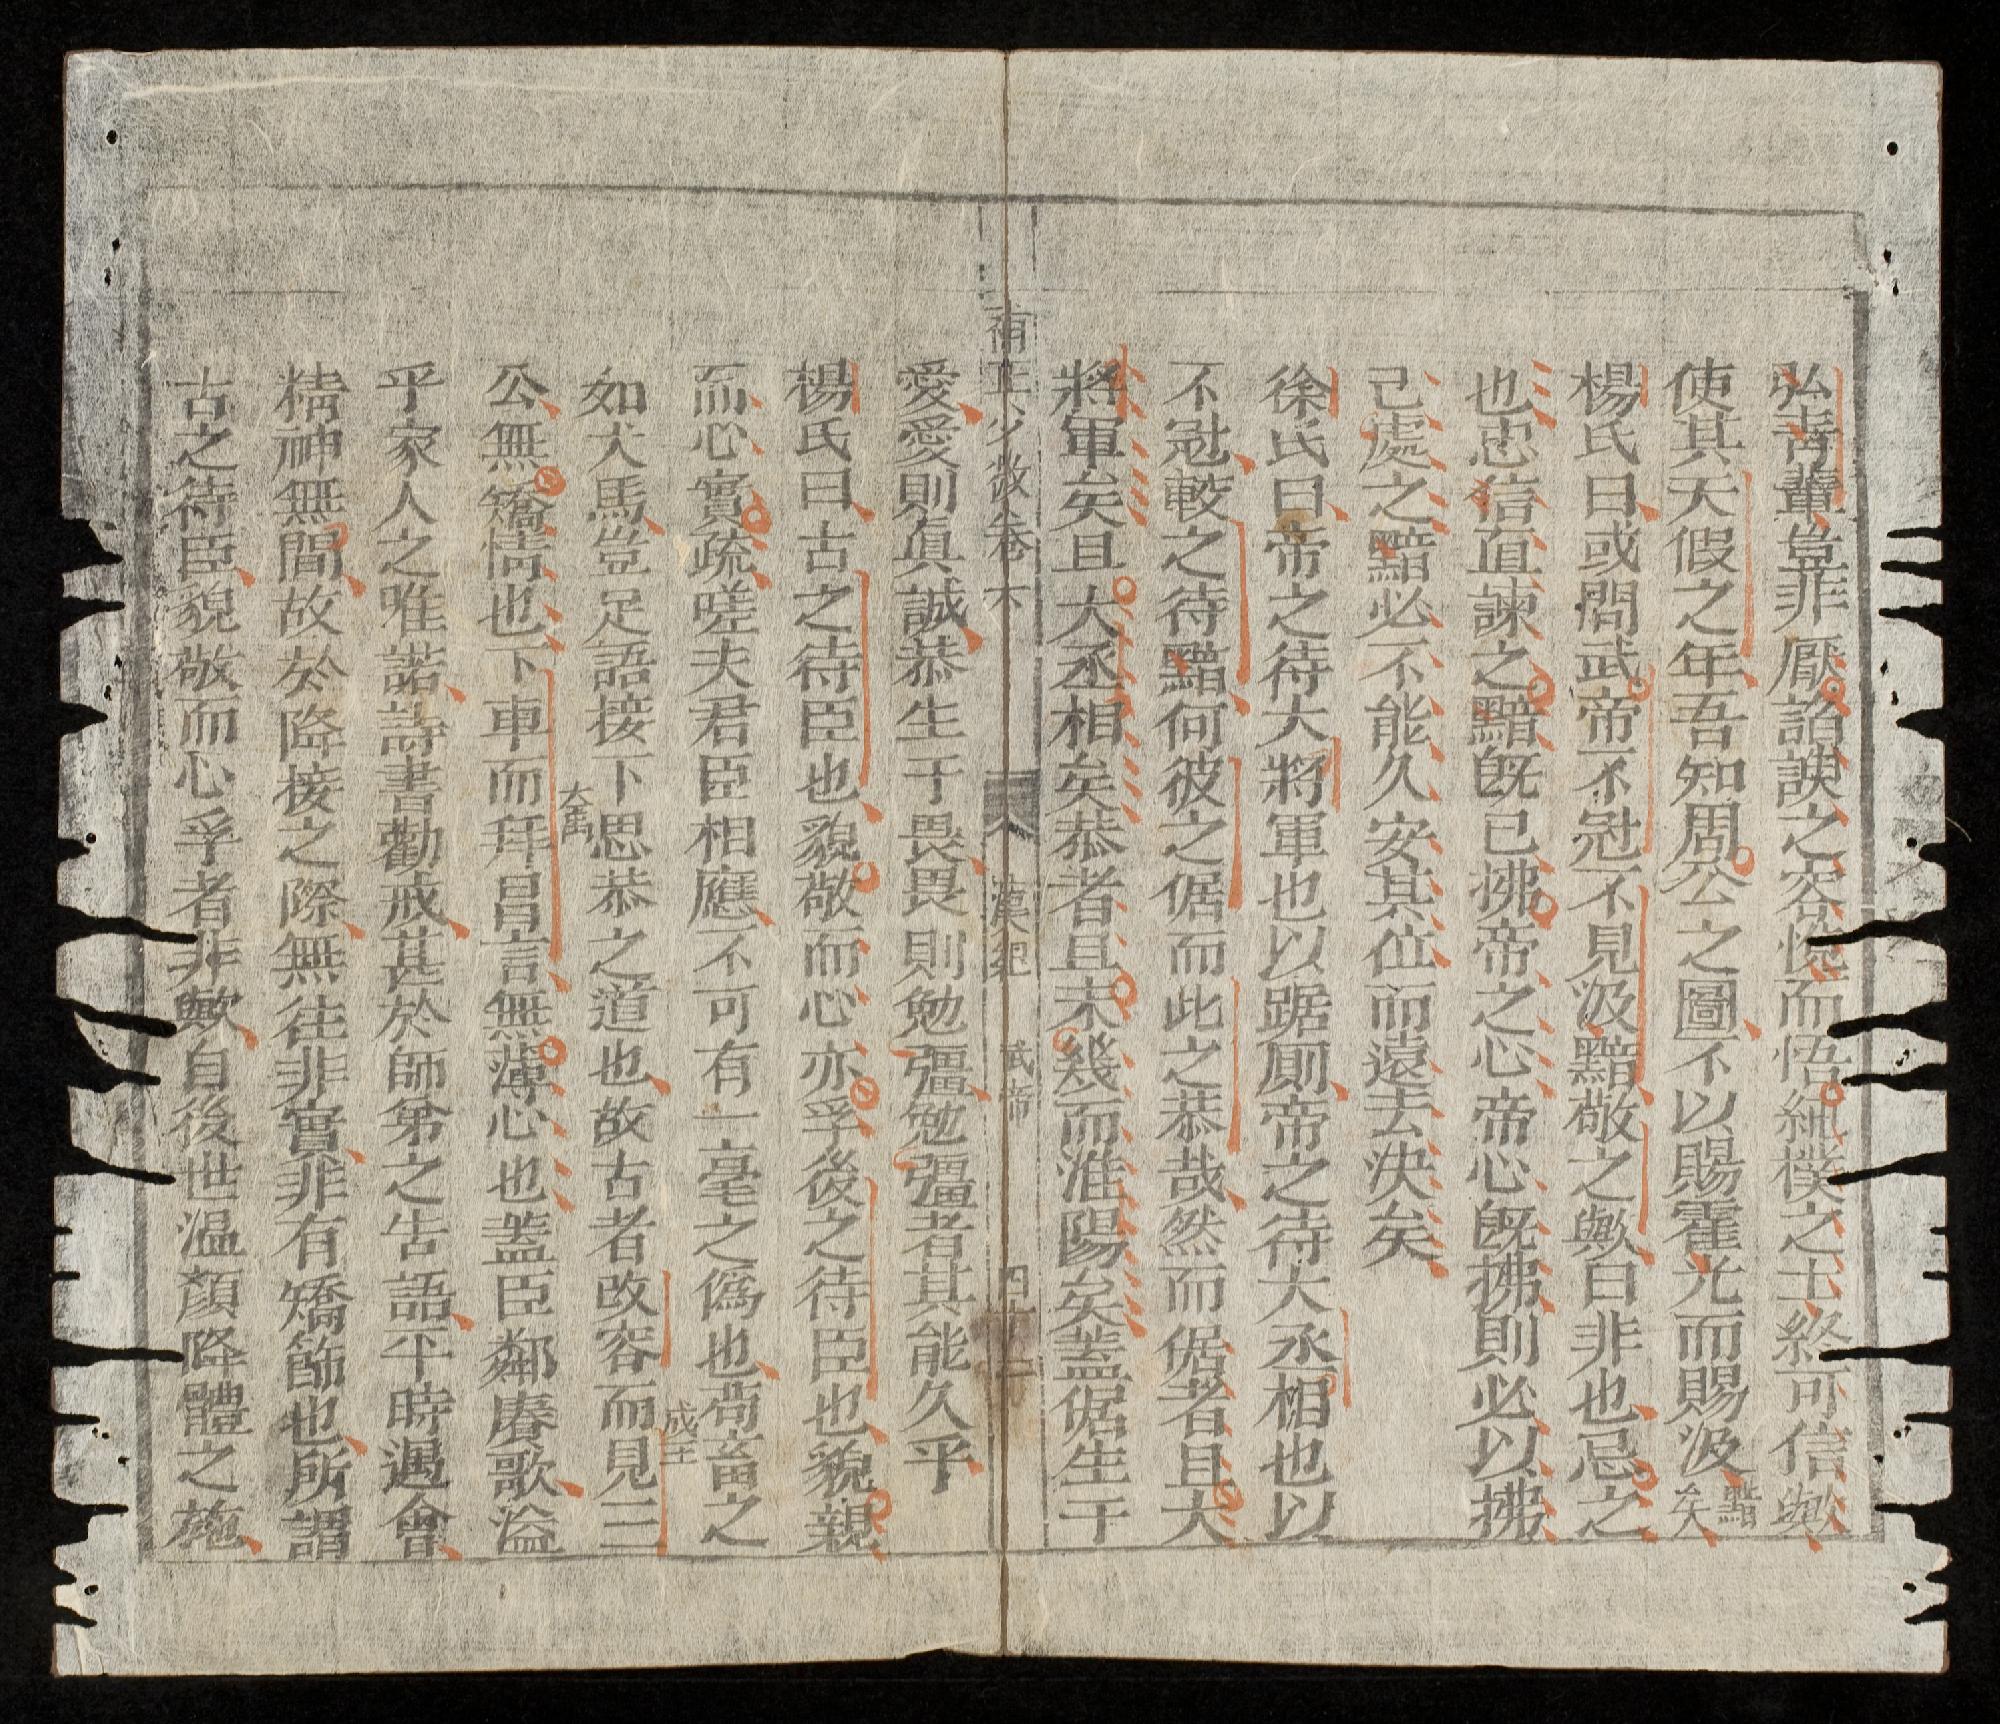 弘壽輩豈非厭諂諛之容悅而悟純樸之士終可信歟
使其天假之年吾知周公之圖不以賜霍光而賜汲黯矣
楊氏曰或問武帝不冠不見汲黯敬之歟曰非也忌之
也忠信直諫之黯旣已拂帝之心帝心旣拂則必以拂
己處之黯必不能久安其位而遠去決矣
徐氏曰帝之待大將軍也以踞厠帝之待大丞相也以
不冠較之待黯何彼之倨而此之恭哉然而倨者且大
將軍矣且大丞相矣恭者且未幾而淮陽矣蓋倨生于
愛愛則眞誠恭生于畏畏則勉彊勉彊者其能久乎
楊氏曰古之待臣也貌敬而心亦孚後之待臣也貌親
而心實疏嗟夫君臣相應不可有一毫之僞也苟畜之
如犬馬豈足語接下思恭之道也故古者改容而見三
公無矯情也下車而拜昌言無薄心也蓋臣鄰賡歌溢
乎家人之唯諾詩書勸戒甚於師第之告語平時遇會
精神無間故於降接之際無往非實非有矯飾也所謂
古之待臣貌敬而心孚者非歟自後世溫顏降體之施
大禹
成王
卷下
漢紀
武帝